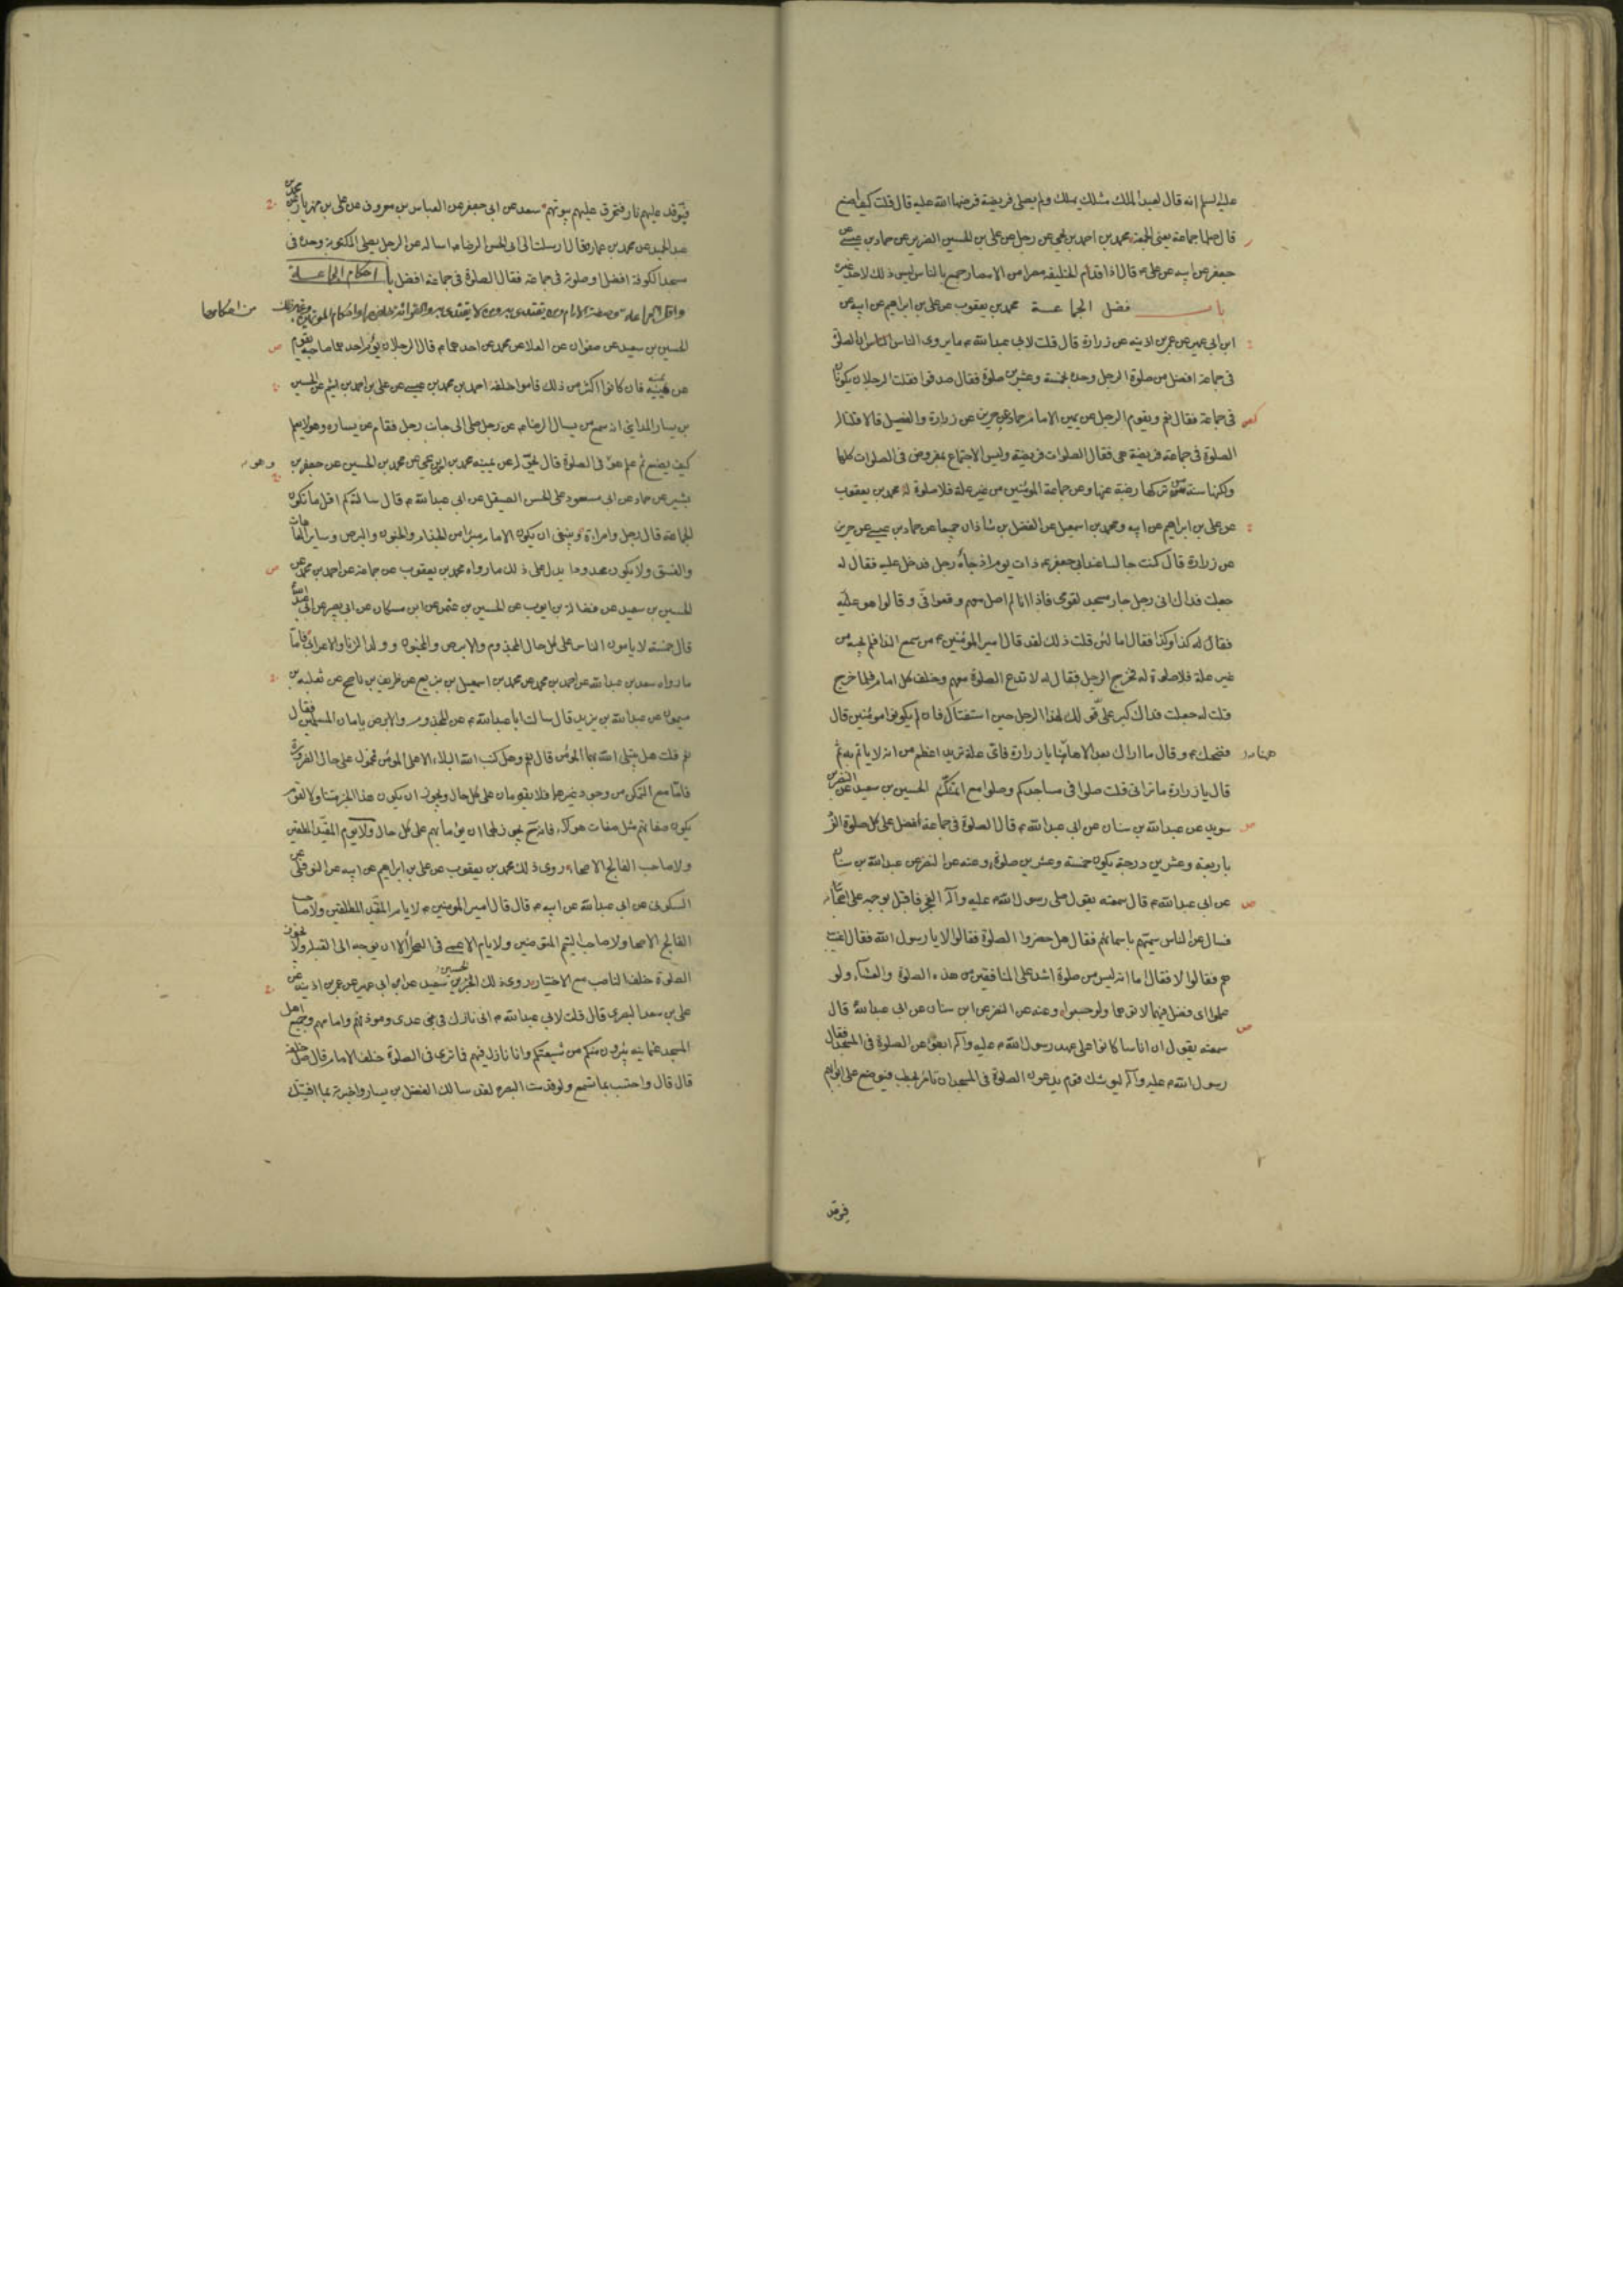 عليه السلم انه قال لعبد الملك مثلك يهلك ولم يصلى فريضة فرضها الله عليه قال قلت كيف اصنع
قال صلها جماعة يعنى الجمعة محمد بن احمد بن يحيى عن رجل عن على بن الحسين الضرير عن حماد بن عيسى عن
جعفر عن ابيه عن على م قال اذا قدم الخليفه مصرا من الامصار جمع بالناس ليس ذلك لاحد غيره
باب فضل الجماعة محمد بن يعقوب عن على بن ابراهيم عن ابيه عن
ابن ابى عمير عن عمر بن اذينه عن زرارة قال قلت لابى عبد الله م ما يروى الناس ان الصلوة
فى جماعة افضل من صلوة الرجل وحده بخمسة وعشرين صلوة فقال صدقوا فقلت الرجلان يكونان
فى جماعة فقال نعم ويقوم الرجل عن يمين الامام حماد عن حريز عن زرارة والفضيل قالا قلنا له
الصلوة فى جماعة فريضة هى فقال الصلوات فريضة وليس الاجتماع بمفروض فى الصلوات كلها
ولكنها سنة من تركها رغبة عنها وعن جماعة المؤمنين من غير علة فلا صلوة له محمد بن يعقوب
عن على بن ابراهيم عن ابيه ومحمد بن اسمعيل عن الفضل بن شاذان جميعا عن حماد بن عيسى عن حريز
عن زرارة قال كنت جالسا عند ابى جعفر م ذات يوم اذ جاءه رجل فدخل عليه فقال له
جعلت فداك انى رجل جار مسجد لقومى فاذا انا لم اصل معهم وقعوا فى وقالوا هو
فقال له كذا وكذا فقال اما لئن قلت ذلك لقد قال امير المؤمنين م من سمع الندا فلم يجبه من
غير علة فلا صلوة له فخرج الرجل فقال له لا تدع الصلوة معهم وخلف كل امام فلما خرج
قلت له جعلت فداك كبر على قولك لهذا الرجل حين استفتاك فان لم يكونوا مؤمنين قال
فضحك م وقال ما اراك بعد الا هاهنا يا زرارة فاى علة تريد اعظم من انه لا ياتم به ثم
قال يا زرارة ما ترانى قلت صلوا فى مساجدكم وصلوا مع ائمتكم الحسين بن سعيد عن النضر بن
سويد عن عبد الله بن سنان عن ابى عبد الله م قال الصلوة فى جماعة افضل على كل صلوة الفرد
باربعة وعشرين درجة يكون خمسة وعشرين صلوة وعنه عن النضر عن عبد الله بن سنان
عن ابى عبد الله م قال سمعته يقول صلى رسول الله م عليه وآله الفجر فاقبل بوجهه على اصحابه
فسال عن الناس سميتهم باسمائهم فقال هل حضروا الصلوة فقالوا لا يا رسول الله فقال اغيب
هم فقالوا لا فقال اما انه ليس من صلوة اشد على المنافقين من هذه الصلوة والعشاء ولو
علموا اى فضل فيهما لاتوهما ولو حبوا وعنه عن النضر عن ابن سنان عن ابى عبد الله م قال
سمعته يقول ان اناسا كانوا على عهد رسول الله م عليه وآله ابطؤا عن الصلوة فى المسجد فقال
رسول الله م عليه وآله ليوشك قوم يدعون الصلوة فى المسجد ان نامر بحطب فيوضع على ابوابهم
فيوقد
فيوقد عليهم نار فتحرق عليهم بيوتهم سعد عن ابى جعفر عن العباس بن معروف عن على بن مهزيار عن محمد بن
عبد الحميد عن محمد بن عمارة قال ارسلت الى ابى الحسن الرضا م اساله عن الرجل يصلى المكتوبة وحده فى
مسجد الكوفة افضل او صلوته فى جماعة فقال الصلوة فى جماعة افضل با احكام الجماعة
واقل الجماعة وصفة الامام ومن يقتدى به ومن لا يقتدى به والقرائة خلفهما واحكام المؤتمين وغير ذلك من احكامها
الحسين بن سعيد عن صفوان عن العلا عن محمد عن احدهما م قال الرجلان يؤم احدهما صاحبه يقوم
عن يمينه فان كانوا اكثر من ذلك قاموا خلفه احمد بن محمد بن عيسى عن على بن احمد بن اشيم عن الحسين
بن يسار المدائنى انه سمع من يسال الرضا م عن رجل صلى الى جانب رجل فقام عن يساره وهو لا يعلم
كيف يصنع ثم علم هو فى الصلوة قال يحوله عن يمينه محمد بن يحيى عن محمد بن الحسين عن جعفر بن
بشير عن حماد عن ابى مسعود على الحسن الصيقل عن ابى عبد الله م قال سالته كم اقل ما تكون
الجماعة قال رجل وامراة وينبغى ان يكون الامام مبرا من الجذام والجنون والبرص وساير العاهات
والفسق ولا يكون محدودا يدل على ذلك ما رواه محمد بن يعقوب عن جماعة عن احمد بن محمد عن
الحسين بن سعيد عن فضالة بن ايوب عن الحسين بن عثمن عن ابن مسكان عن ابى بصير عن ابى عبد الله
قال خمسة لا يامون الناس على كل حال المجذوم والابرص والمجنون وولد الزنا والاعرابى فاما
ما رواه سعد بن عبد الله عن احمد بن محمد عن محمد بن اسمعيل بن بزيع عن ظريف بن ناصح عن ثعلبه بن
ميمون عن عبد الله بن يزيد قال سالت ابا عبد الله م عن المجذوم والابرص يامان المسلمين فقال
نعم قلت هل يبتلى الله بهما المؤمن قال نعم وهل كتب الله البلاء الا على المؤمن فمحمول على حال الضرورة
فاما مع التمكن من وجود غيرهما فلا يؤمان على كل حال ويجوز ان يكون هذا الخبر متناولا لقوم
يكون صفاتهم مثل صفات هؤلاء فانه يجوز لهما ان يؤما بهم على كل حال ولا يؤم المقيد المطلقين
ولا صاحب الفالج الاصحاء روى ذلك محمد بن يعقوب عن على بن ابراهيم عن ابيه عن النوفلى عن
السكونى عن ابى عبد الله عن ابيه م قال قال امير المؤمنين م لا يام المقيد المطلقين ولا صاحب
الفالج الاصحا ولا صاحب التيمم المتوضين ولا يام الاعمى فى الصحرا الا ان يوجه الى القبله ولا يجوز
الصلوة خلف الناصب مع الاختيار روى ذلك الحسين بن سعيد عن ابن ابى عمير عن عمر بن اذينه عن
على بن سعد البصرى قال قلت لابى عبد الله م انى نازل فى بنى عدى وموذنهم وامامهم وجميع اهل
المسجد عثمانيه يتبرؤن منكم من شيعتكم وانا نازل فيهم فما ترى فى الصلوة خلف الامام قال صل خلفه
قال قال واحتسب بما تسمع ولو قدمت البصره لقد سالك الفضل بن يسار واخبرته بما افتيتك